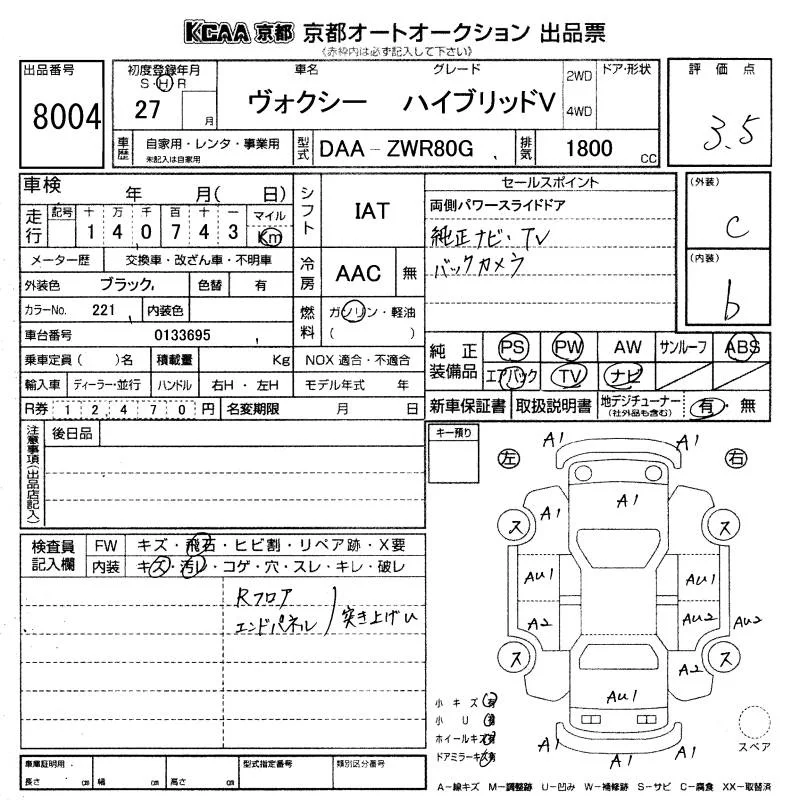 KCAA 京都 京都オートオークション 出品票
《赤枠内は必ず記入して下さい》
出品番号
8004
初度登録年月
S・H・R
27 月
車名 グレード
ヴォクシー ハイブリッドV
2WD
4WD
ドア・形状
評価点
3.5
車歴 自家用・レンタ・事業用
未記入は自家用
型式 DAA-ZWR80G
排気 1800 CC
車検 年 月( 日)
走行 記号 十 万 千 百 十 一 マイル
1 4 0 7 4 3 Km
シフト IAT
メーター歴 交換車・改ざん車・不明車
冷房 AAC 無
外装色 ブラック 色替 有
カラーNo. 221 内装色
燃料 ガソリン・軽油
( )
車台番号 0133695
乗車定員( )名 積載量 Kg NOX 適合・不適合
輸入車 ディーラー・並行 ハンドル 右H・左H モデル年式 年
R券 12470円 名変期限 月 日
セールスポイント
両側パワースライドドア
純正ナビ・TV
バックカメラ
(外装)
C
(内装)
b
純正装備品 PS PW AW サンルーフ ABS
エアバック TV ナビ
新車保証書 取扱説明書 地デジチューナー
(社外品も含む)
有・無
注意事項(出品店記入)
後日品
キー預り
左 右
検査員記入欄
FW キズ・飛石・ヒビ割・リペア跡・X要
内装 キズ・汚レ・コゲ・穴・スレ・キレ・破レ
Rフロア
エンドパネル
突き上げU
A1 A1
A1
A1 A1
ス ス
AU1 AU1
A2 AU2 AU2
ス ス
A2
AU1
A1 A1
小キズ 有
小U 有
ホイールキズ 有
ドアミラーキズ 有
スペア
A-線キズ M-調整跡 U-凹み W-補修跡 S-サビ C-腐食 XX-取替済
車庫証明用 型式指定番号 類別区分番号
長さ cm 幅 cm 高さ cm